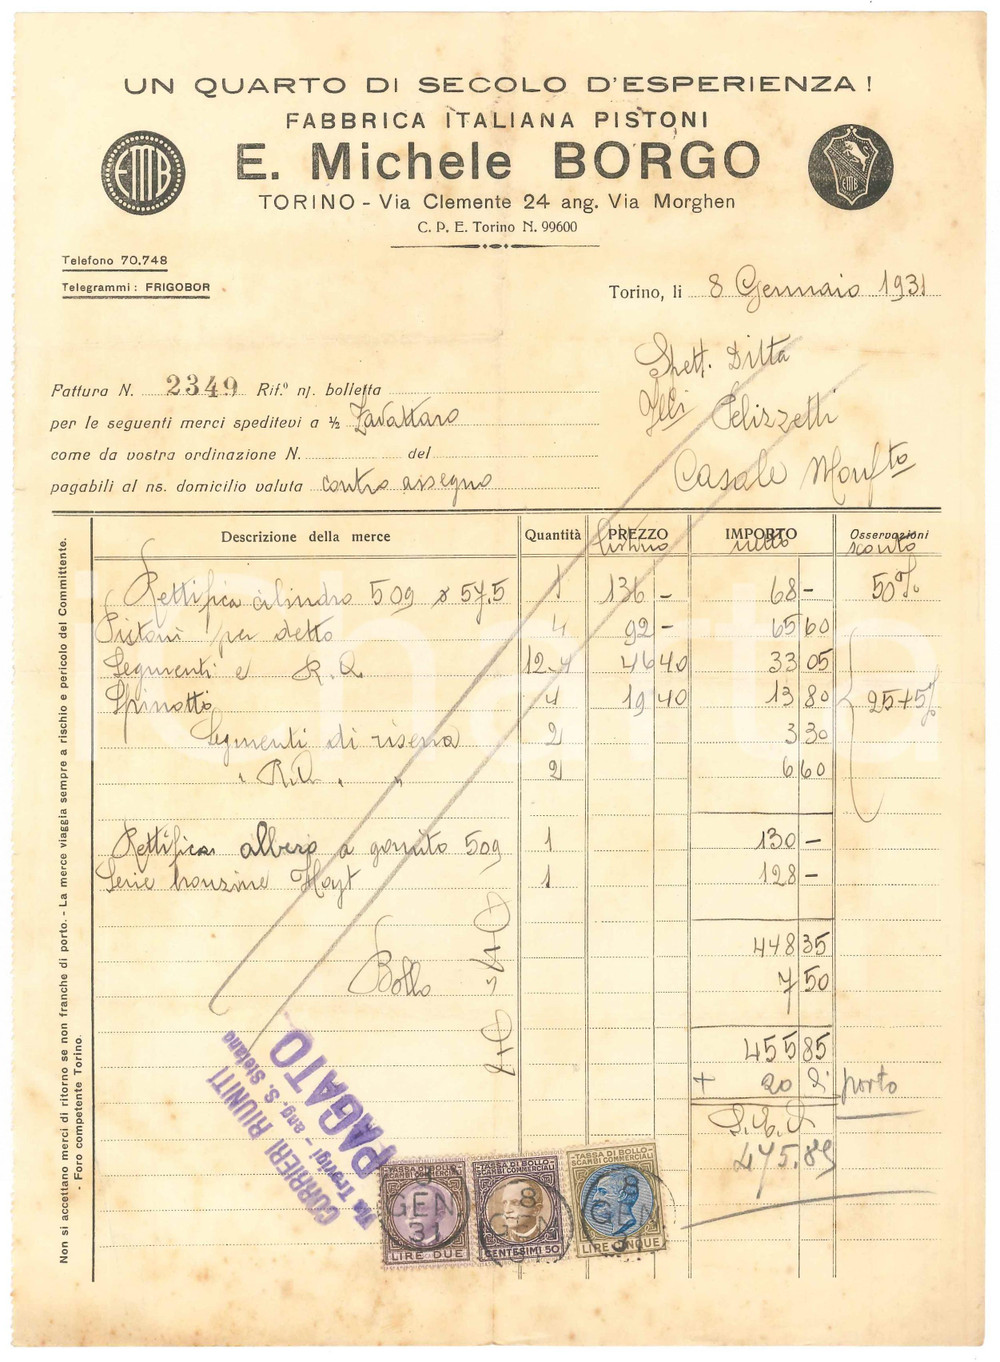 UN QUARTO DI SECOLO D'ESPERIENZA !
FABBRICA ITALIANA PISTONI
E. Michele BORGO
TORINO - Via Clemente 24 ang. Via Morghen
C. P. E. Torino N. 99600
EMB
EMB
Telefono 70.748
Telegrammi : FRIGOBOR
Torino, li 8 Gennaio 1931
Spett. Ditta
Flli Pelizzetti
Casale Monfto
Fattura N. 2349 Rif.º n/. bolletta
per le seguenti merci speditevi a ½ Zavattaro
come da vostra ordinazione N. del
pagabili al ns. domicilio valuta contro assegno
Descrizione della merce Quantità PREZZO IMPORTO Osservazioni
listino netto sconto
Rettifica cilindro 509 ø 57,5 1 136 - 68 - 50%
Pistoni per detto 4 92 - 65 60
Segmenti e R.Q 12-4 46 40 33 05
Spinotti 4 19 40 13 80 25+5%
Segmenti di riserva 2 3 30
" R.Q " " 2 6 60
Rettifica albero a gomito 509 1 130 -
Serie bronzine Hoyt 1 128 -
448 35
Bollo 7 50
455 85
+ 20 di porto
S.E.&O
475.85
CORRIERI RIUNITI
Via Trovigi - ang. S. Stefano
PAGATO
TASSA DI BOLLO
SCAMBI COMMERCIALI
LIRE DUE
8 GEN 31
TASSA DI BOLLO
SCAMBI COMMERCIALI
CENTESIMI 50
8 GEN 31
TASSA DI BOLLO
SCAMBI COMMERCIALI
LIRE CINQUE
8 GEN 31
Non si accettano merci di ritorno se non franche di porto. - La merce viaggia sempre a rischio e pericolo del Committente.
- Foro competente Torino.
iCharta